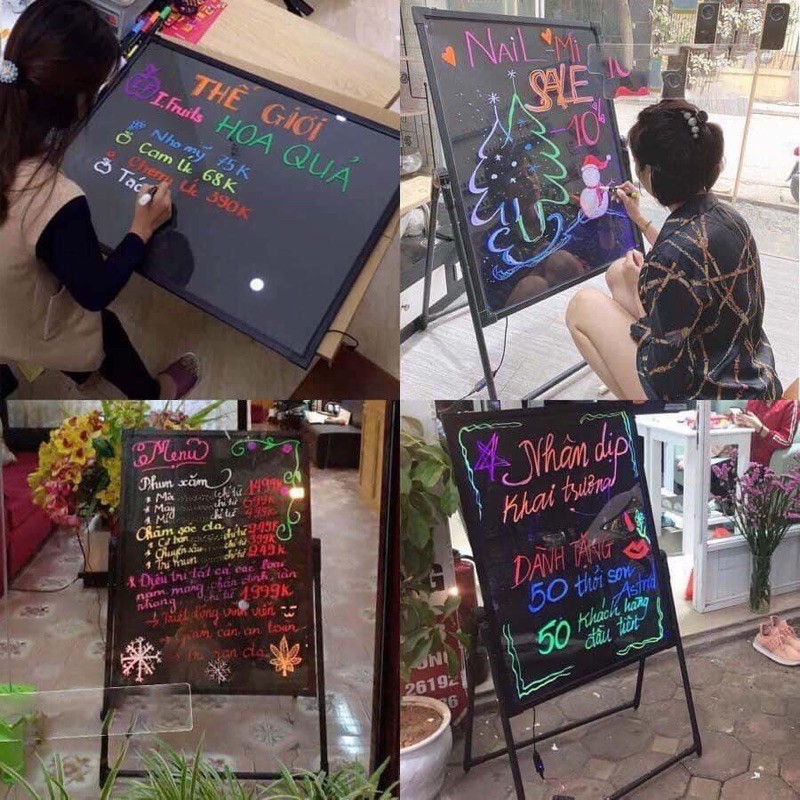 THẾ GIỚI
I.Fruits HOA QUẢ
Nho mỹ 75K
Cam Úc 68K
Cherry Úc 390K
Táo
NaiL Mi
SALE
-10%
Menu
Phun xăm
Mày
chỉ từ
Chăm sóc da
Cơ bản chỉ từ 399K
Chuyên sâu chỉ từ
Trị mụn 249K
Điều trị tất cả các loại
nám, mảng, chân đinh, tàn
nhang chỉ từ 1999K
→ Triệt lông vĩnh viễn
→ Giảm cân an toàn
Nhân dịp
khai trương
DÀNH TẶNG
50 thỏi son
Astrid
50 khách hàng
đầu tiên
26192